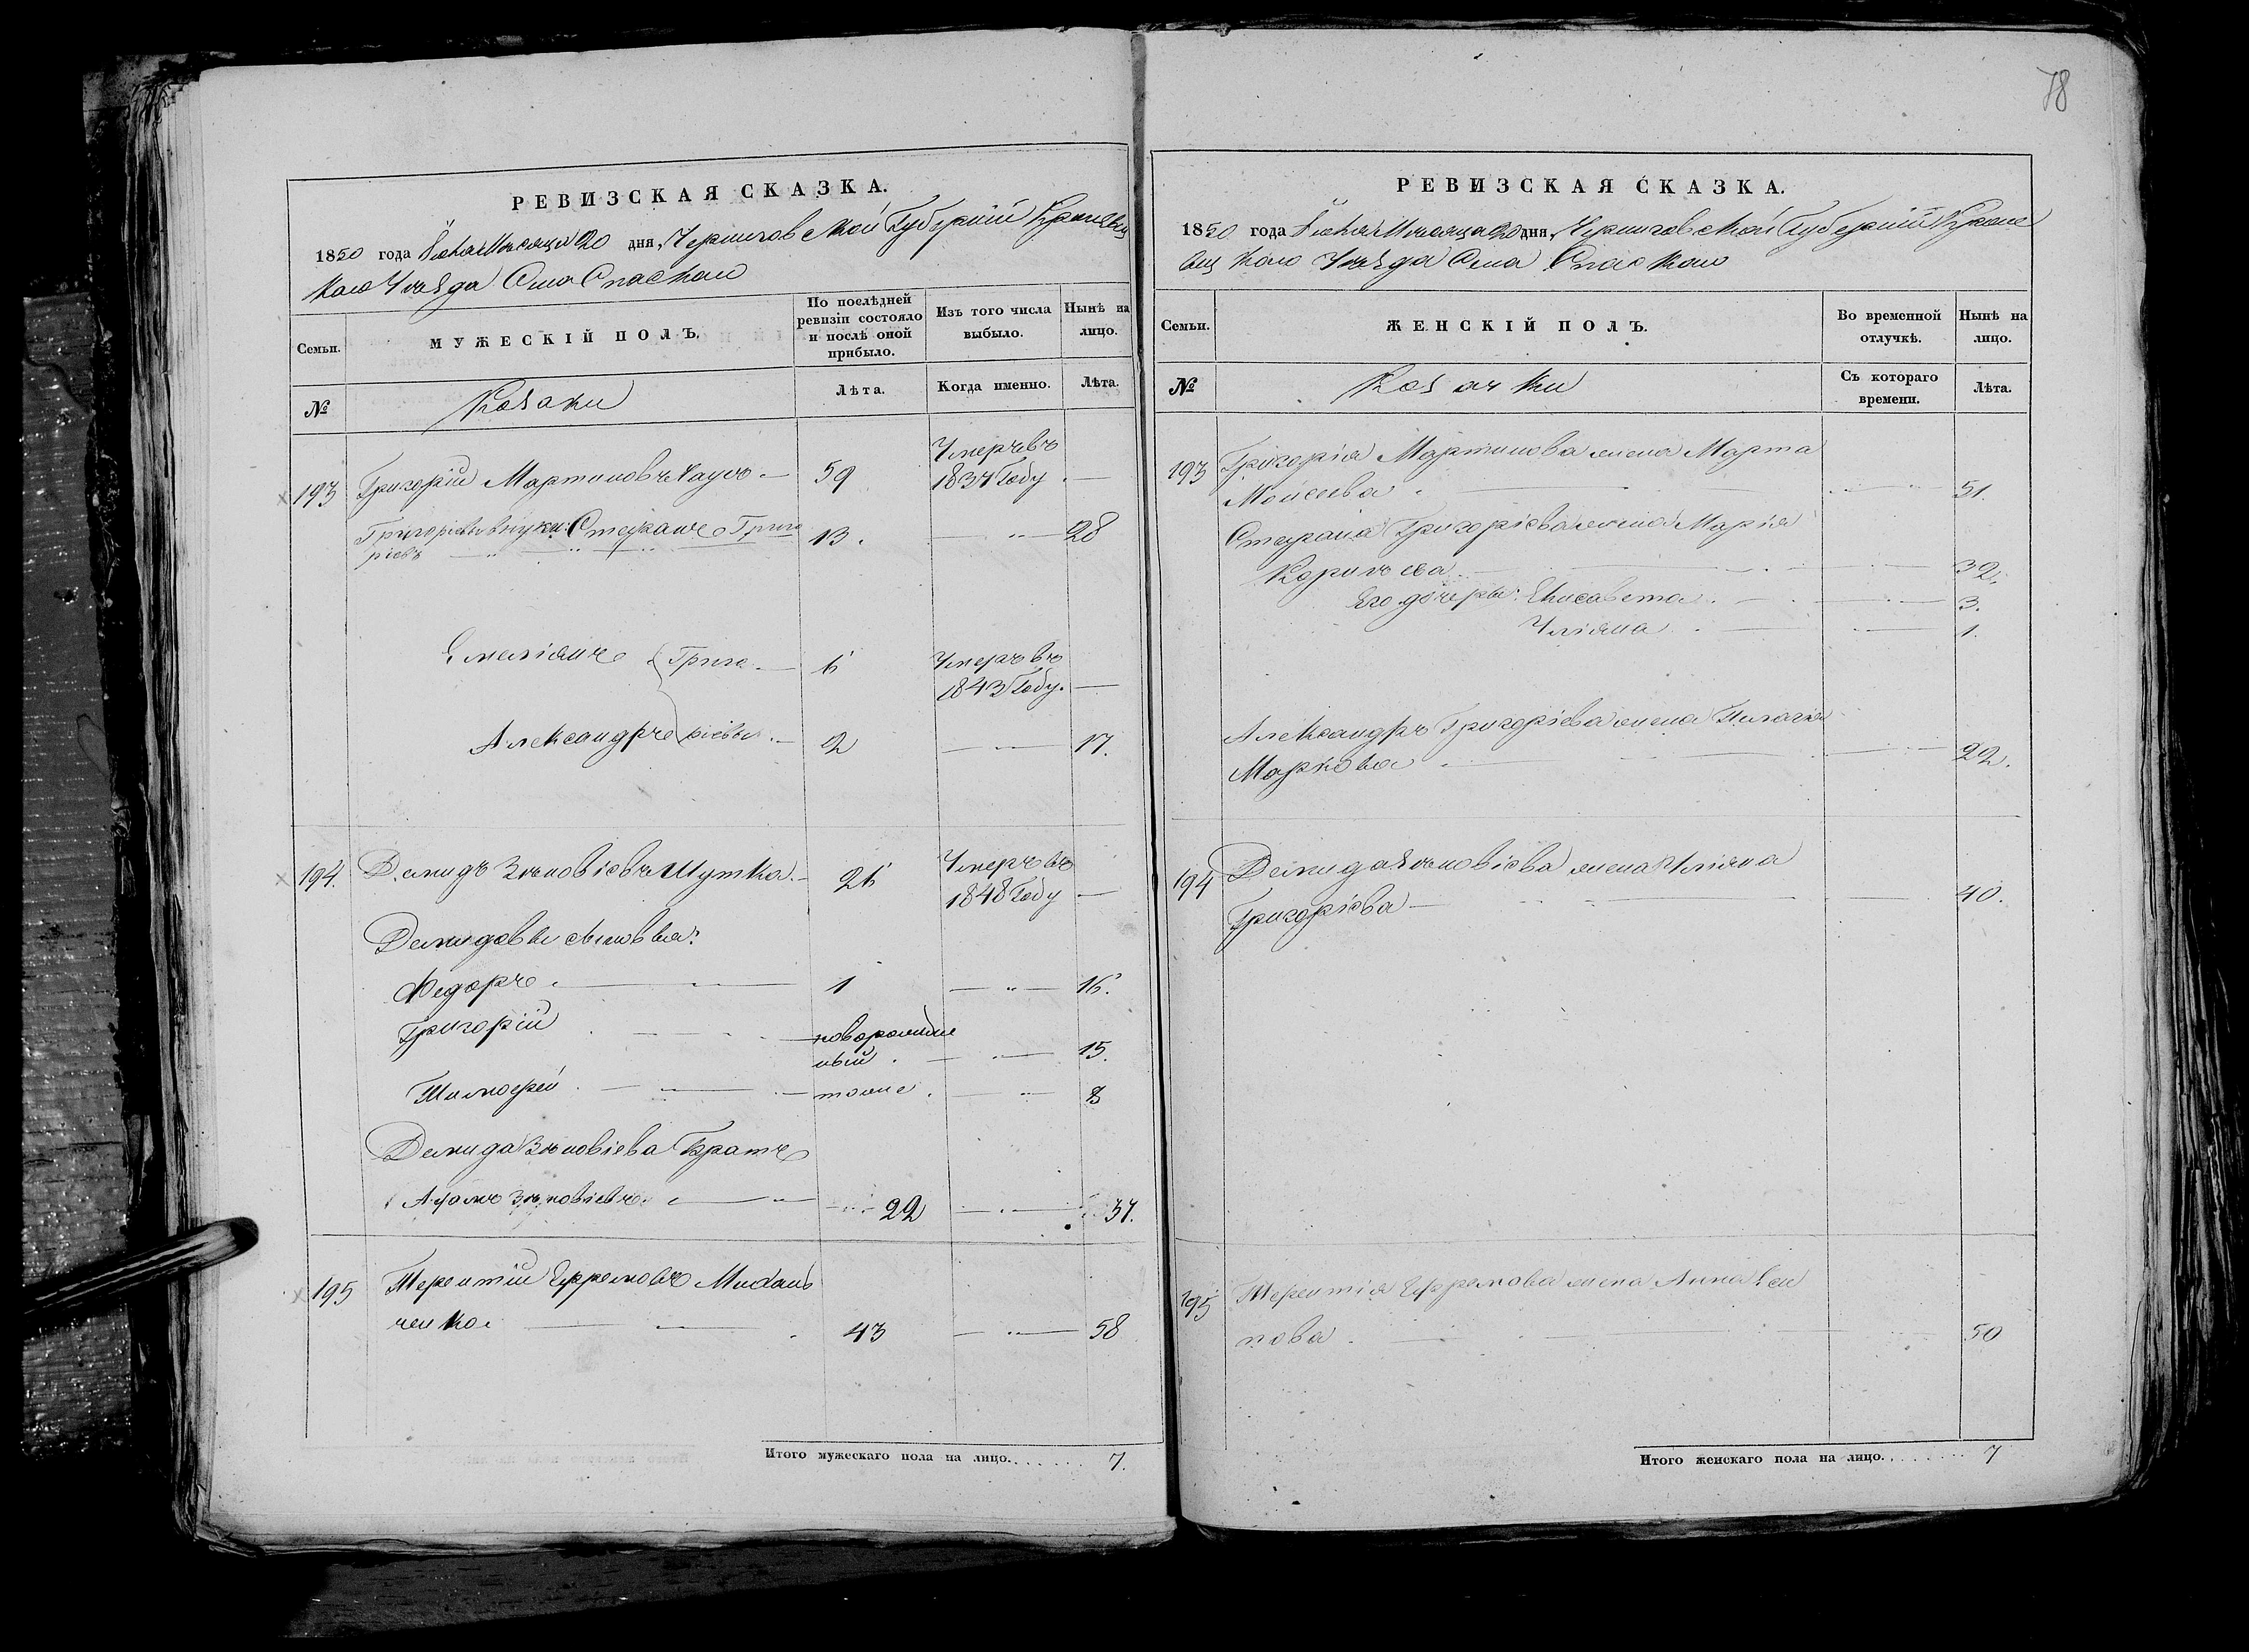 78
РЕВИЗСКАЯ СКАЗКА.
1850 года Июня Месяца 20 дня, Черниговской Губерніи Кролевец
кого Уезда Села Спаскаго
Семьи.
МУЖЕСКІЙ ПОЛЪ.
По послѣдней ревизіи состояло и послѣ оной прибыло.
Изъ того числа выбыло.
Нынѣ на лицо.
№
Козаки
Лѣта.
Когда именно.
Лѣта.
193 Григорій Мартиновъ — 59 Умеръ въ 1837 Году —
Григорьевы внуки: Стефанъ Григо
ріевъ 13. — 28
Емеліанъ Григо — 6 Умеръ въ 1843 Году. —
Александръ ріевы — 2 — 17.
194. Демидъ Зѣновіевъ Шутка — 26 Умеръ въ 1848 Году —
Демидовы сыновья:
Федоръ — 1 — 16.
Григорій — новорожден
ный. — 15.
Тимофей — тоже. — 8
Демида Зѣновіева Братъ
Адамъ Зѣновіевъ — 22 — 37.
195 Терентій Ефремовъ
ченко — 43 — 58
Итого мужескаго пола на лицо....... 7.
РЕВИЗСКАЯ СКАЗКА.
1850 года Июня Месяца 20 дня, Черниговской Губерніи Кроле
вец кого Уезда Села Спаского
Семьи.
ЖЕНСКІЙ ПОЛЪ.
Во временной отлучкѣ.
Нынѣ на лицо.
№
Козачки
Съ котораго времени.
Лѣта.
193 Григорія Мартинова жена Марта
Моисеева — 51.
Стефана Григоріева жена Марія
— 32.
Его дочеры: Елисавета — 3.
Уліяна — 1.
Александръ Григоріева жена Пелагія
Маркова — 22.
194 Демида Зѣновіева жена Уліяна
Григоріева — 40.
195 Терентія Ефремова жена Анна
пова — 50
Итого женскаго пола на лицо....... 7